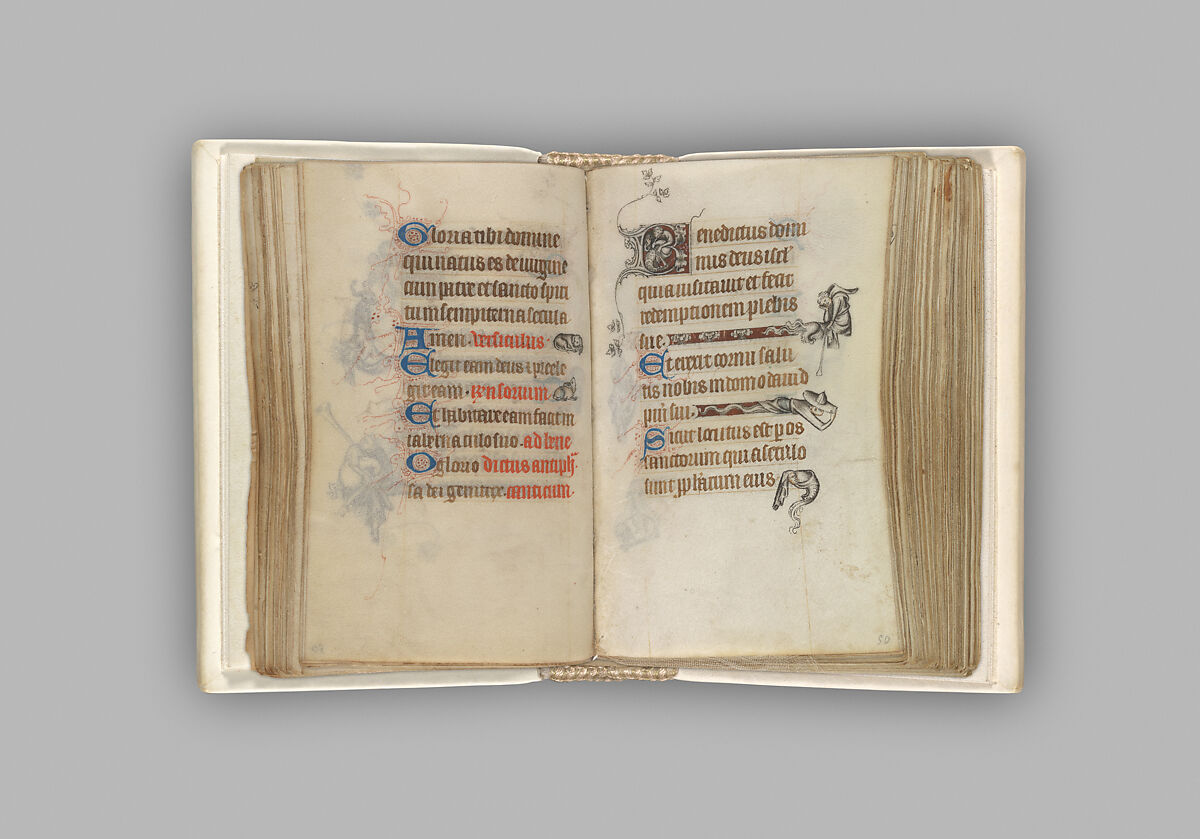 Gloria tibi domine
qui natus es de virgine
cum patre et sancto spiri
tum sempiterna secula
Amen. versiculus
Elegit eam deus i preele
git eam. responsorium
Et habitare eam facit in
tabernaculo suo. ad bene
O glorio dictus antiph.
sa dei genitrix. canticum.
Benedictus domi
nus deus isrl
quia visitavit et fecit
redemptionem plebis
sue.
Et erexit cornu salu
tis nobis in domo david
pueri sui.
Sicut locutus est per os
sanctorum qui a seculo
sunt prophetarum eius
50